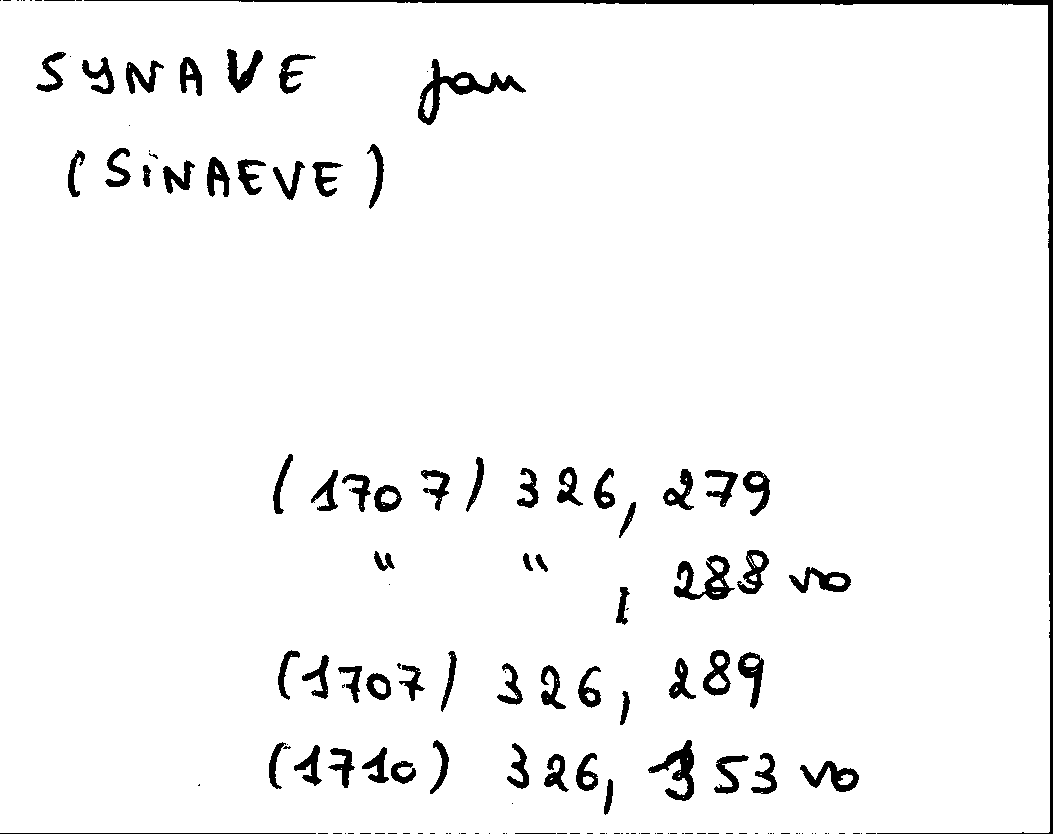 SYNAVE Jan
(SINAEVE)
(1707) 326, 279
" " , 288 vo
(1707) 326, 289
(1710) 326, 353 vo